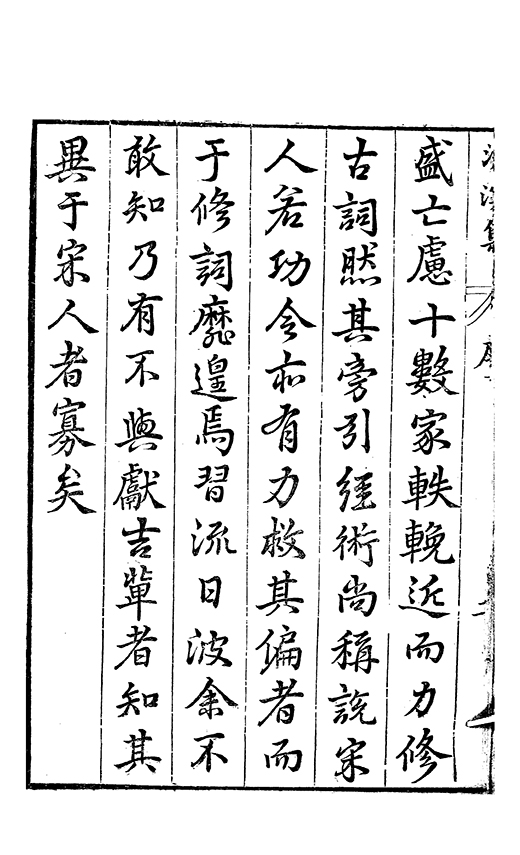 盛亡慮十數家軼輓近而力修
古詞然其旁引經術尚稱說宋
人若功令亦有力救其偏者而
于修詞靡遑焉習流日波余不
敢知乃有不與獻吉輩者知其
異于宋人者寡矣